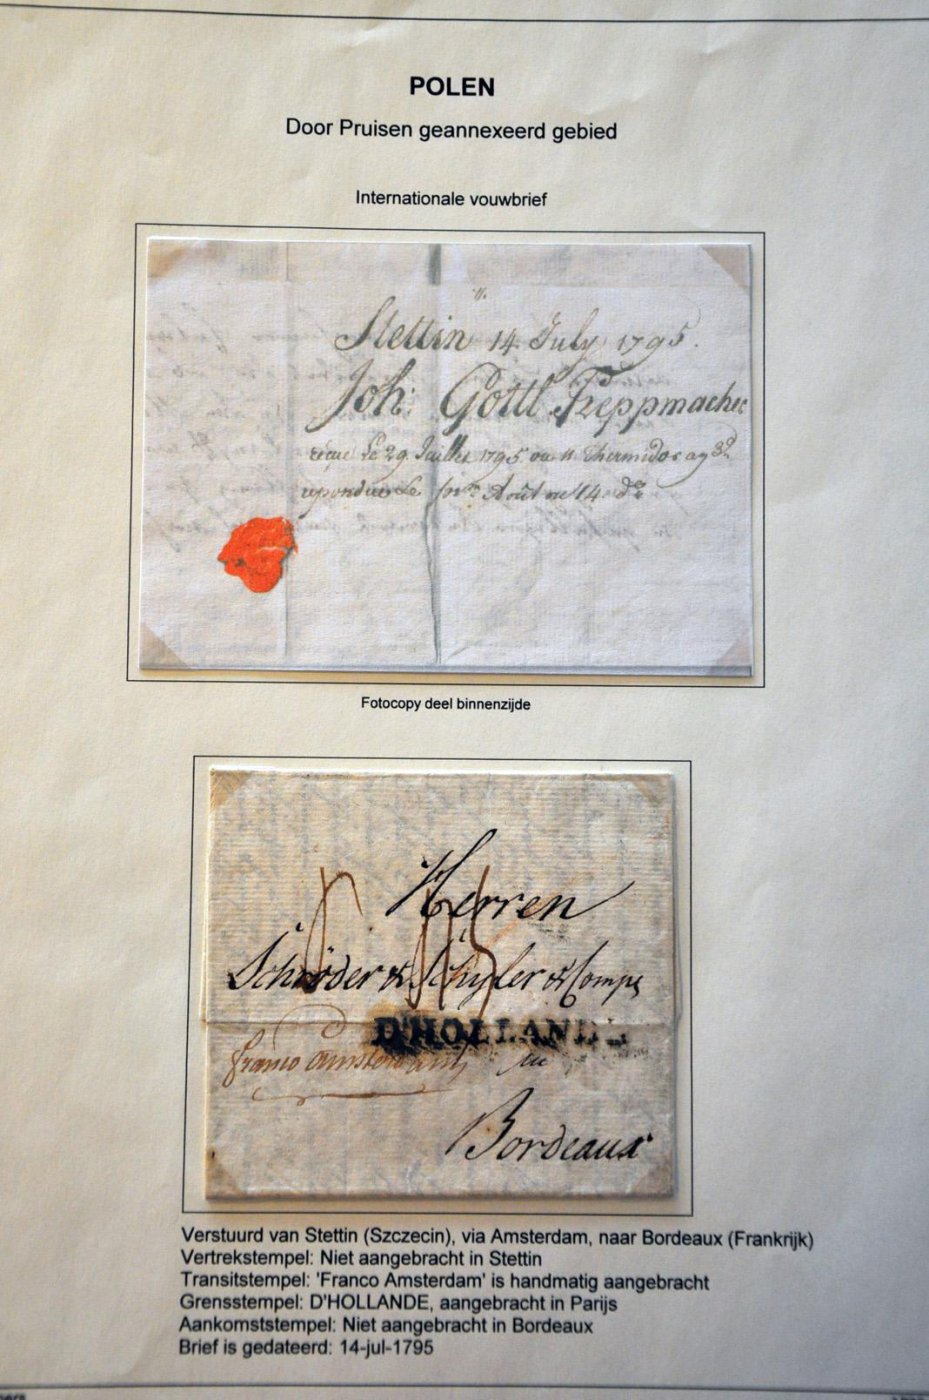 POLEN
Door Pruisen geannexeerd gebied
Internationale vouwbrief
Stettin 14 July 1795.
Joh: Gottl Treppmacher
reçue Le 29 Juillet 1795 ou 11 Thermidor an 3e
repondue Le Août
Fotocopy deel binnenzijde
Herren
Schröder & Schyler & Comp
D'HOLLANDE
franco amsterdam
in
Bordeaux
Verstuurd van Stettin (Szczecin), via Amsterdam, naar Bordeaux (Frankrijk)
Vertrekstempel: Niet aangebracht in Stettin
Transitstempel: 'Franco Amsterdam' is handmatig aangebracht
Grensstempel: D'HOLLANDE, aangebracht in Parijs
Aankomststempel: Niet aangebracht in Bordeaux
Brief is gedateerd: 14-jul-1795